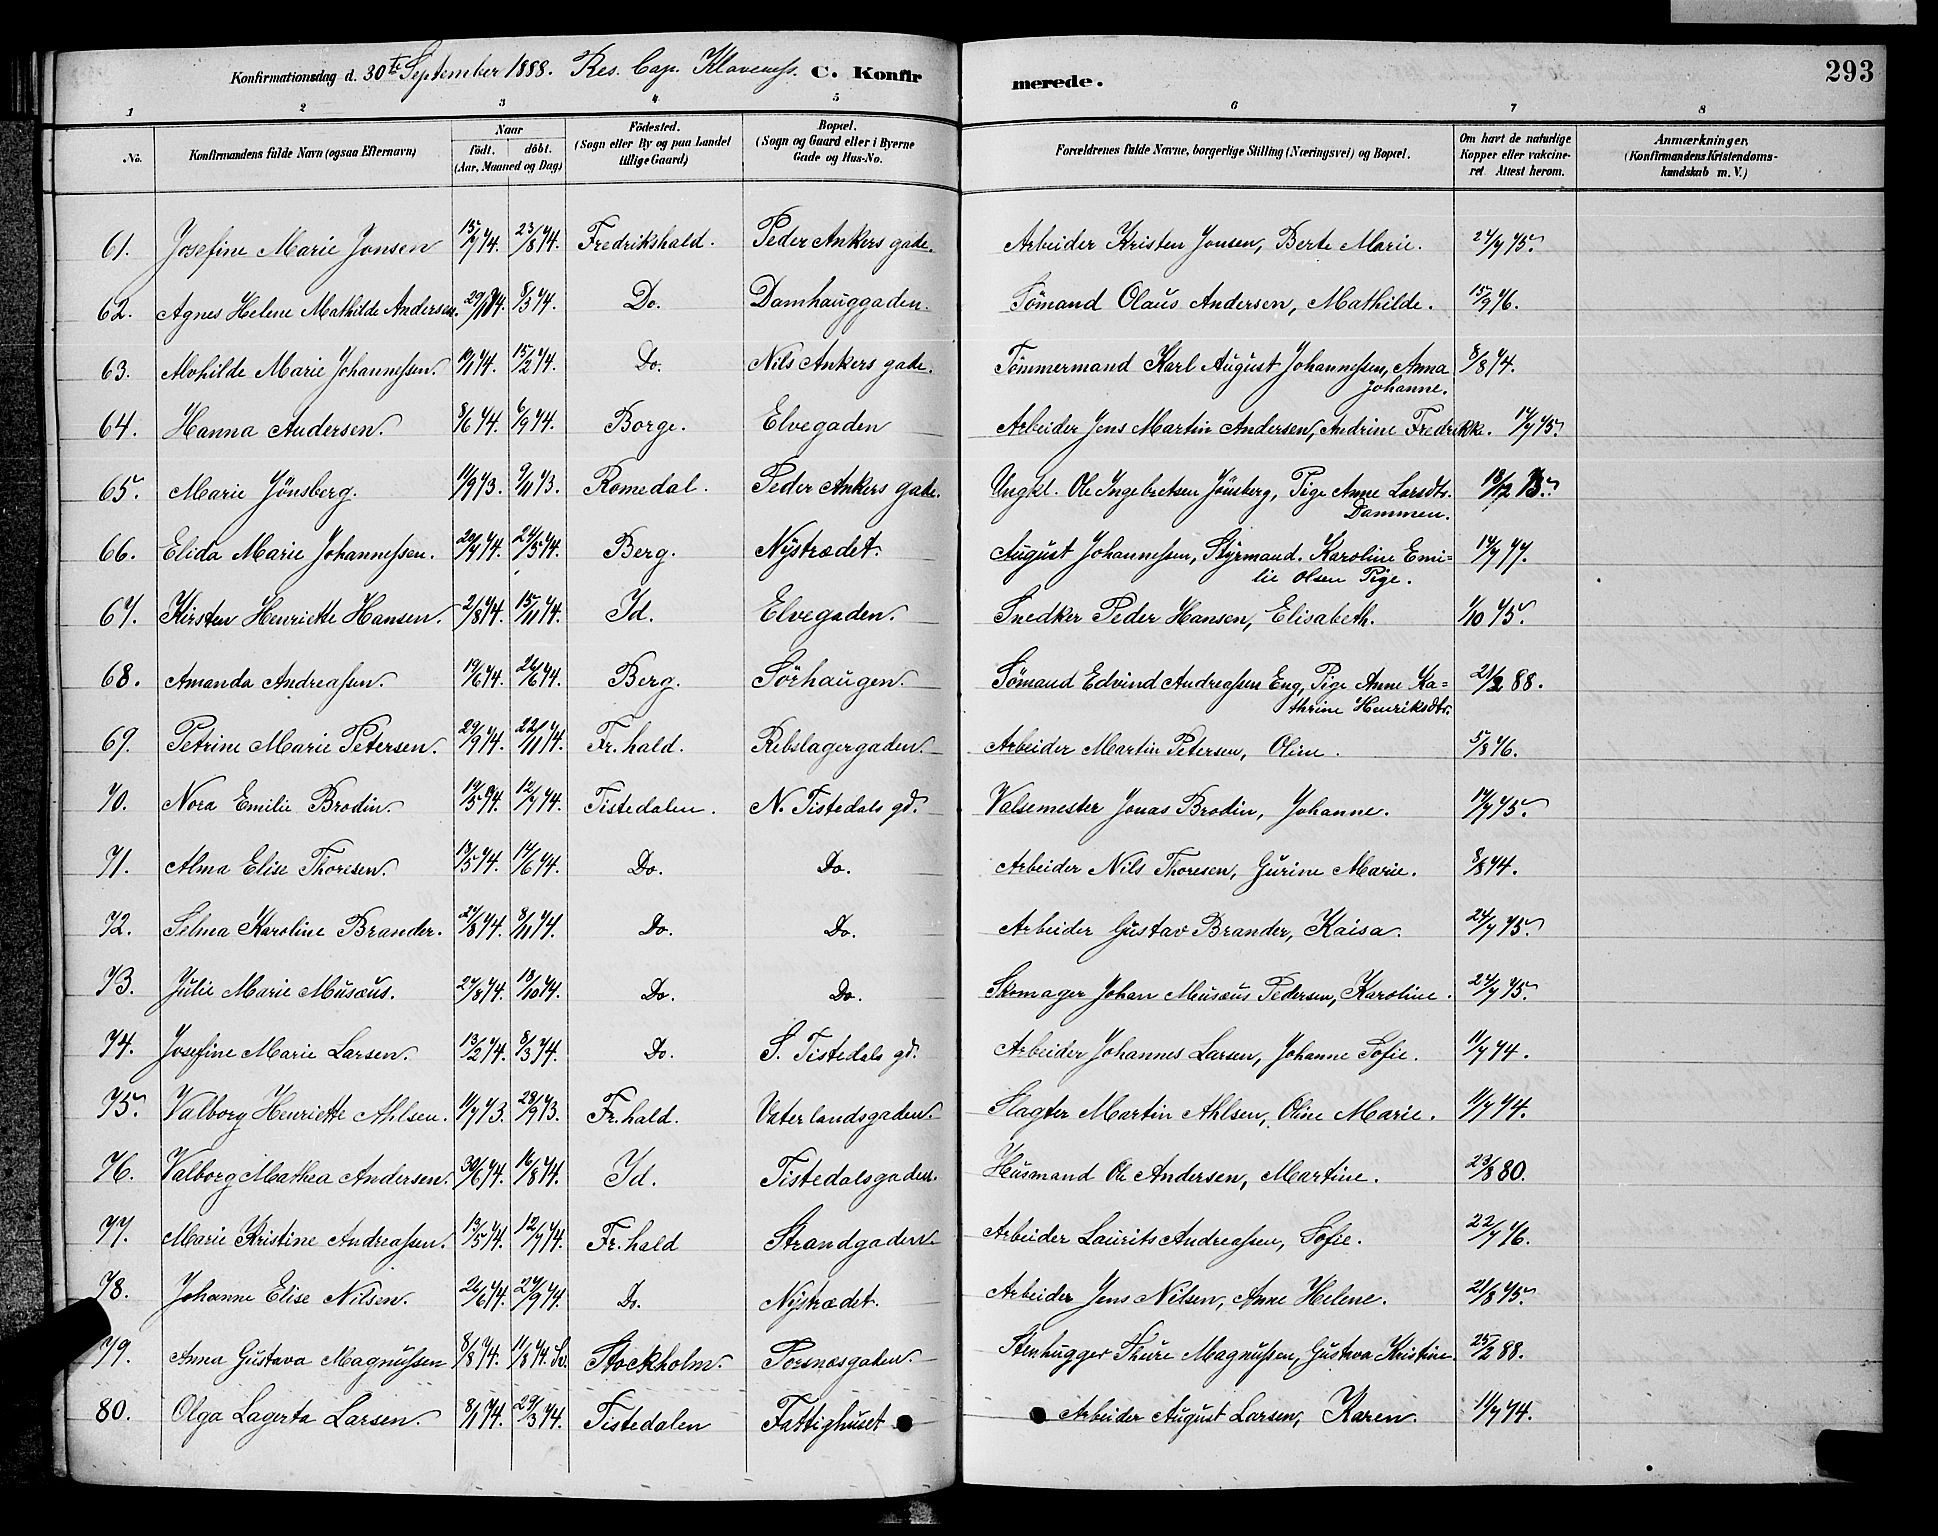 Konfirmationsdag d. 30te September 1888. Res. Cap. Klaveness. C. Konfirmerede. 293
1 2 3 4 5 6 7 8
No. Konfirmandens fulde Navn (ogsaa Efternavn) Naar födt. döbt. (Aar, Maaned og Dag) Födested. (Sogn eller By og paa Landet tillige Gaard) Bopæl. (Sogn og Gaard eller i Byerne Gade og Hus-No. Forældrenes fulde Navne, borgerlige Stilling (Næringsvei) og Bopæl. Om havt de naturlige Kopper eller vakcineret. Attest herom. Anmærkninger. (Konfirmandens Kristendomskundskab m. V.)
61. Josefine Marie Jonsen 15/7 74. 23/8 74. Fredrikshald. Peder Ankers gade. Arbeider Kristen Jonsen, Berte Marie. 24/7 75.
62. Agnes Helene Mathilde Andersen. 29/1 74. 8/3 74. Do. Damhauggaden. Sömand Olaus Andersen, Mathilde. 15/9 76.
63. Alvhilde Marie Johannessen. 10/1 74. 15/2 74. Do. Nils Ankers gade. Tömmermand Karl August Johannessen, Anna Johanne. 8/8 74.
64. Hanna Andersen. 8/6 74. 6/9 74. Borge. Elvegaden Arbeider Jens Martin Andersen, Andrine Fredrikke. 17/7 75.
65. Marie Jönsberg. 11/9 73. 9/11 73. Romedal. Peder Ankers gade. Ungkl. Ole Ingebretsen Jönsberg, Pige Anne Larsdtr. Dammen. 18/12 75.
66. Elida Marie Johannessen. 20/4 74. 24/5 74. Berg. Nystrædet. August Johannessen, Styrmand. Karoline Emilie Olsen Pige. 14/7 77.
67. Kirsten Henriette Hansen. 2/8 74. 15/11 74. Id. Elvegaden. Snedker Peder Hansen, Elisabeth. 1/10 75.
68. Amanda Andreassen. 19/6 74. 26/6 74. Berg. Sörhaugen. Sömand Edvind Andreassen Eng, Pige Anne Kathrine Henriksdtr. 21/2 88.
69. Petrine Marie Petersen. 29/9 74. 22/11 74. Fr.hald. Rebslagergaden. Arbeider Martin Petersen, Oline. 5/8 76.
70. Nora Emilie Brodin. 19/5 74. 12/7 74. Tistedalen. N. Tistedals gd. Valsemester Jonas Brodin, Johanne. 17/7 75.
71. Alma Elise Thoresen. 13/5 74. 14/6 74. Do. Do. Arbeider Nils Thoresen, Gurine Marie. 8/8 74.
72. Selma Karoline Brander. 27/8 74. 8/11 74. Do. Do. Arbeider Gustav Brander, Kaisa. 24/7 75.
73. Julie Marie Musæus. 27/8 74. 18/10 74. Do. Do. Skomager Johan Musæus Pedersen, Karoline. 24/7 75.
74. Josefine Marie Larsen. 13/2 74. 8/3 74. Do. S. Tistedals gd. Arbeider Johannes Larsen, Johanne Sofie. 11/7 74.
75. Valborg Henriette Ahlsen. 11/7 73. 28/9 73. Fr.hald. Vaterlandsgaden. Slagter Martin Ahlsen, Oline Marie. 11/7 74.
76. Valborg Mathea Andersen. 30/6 74. 16/8 74. Id. Tistedalsgaden. Husmand Ole Andersen, Martine. 23/8 80.
77. Marie Kristine Andreassen. 13/5 74. 12/7 74. Fr.hald Strandgaden. Arbeider Laurits Andreassen, Sofie. 22/7 76.
78. Johanne Elise Nilsen. 26/6 74. 27/9 74. Do. Nystrædet. Arbeider Jens Nilsen, Anne Helene. 21/8 75.
79. Anna Gustava Magnussen 8/8 74. 11/8 74. Sv. Stockholm. Torsnæsgaden. Stenhugger Thure Magnussen, Gustava Kristine. 25/2 88.
80. Olga Lagerta Larsen. 8/1 74. 29/3 74. Tistedalen Fattighuset Arbeider August Larsen, Karen. 11/7 74.